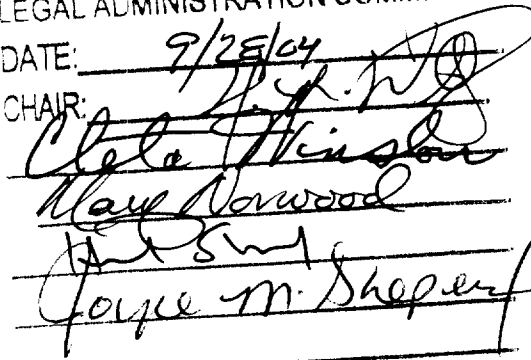 LEGAL ADMINISTRATION COMM
DATE: 9/28/04
CHAIR:
Cleta Winslow
Mary Norwood
Joyce M. Sheperd